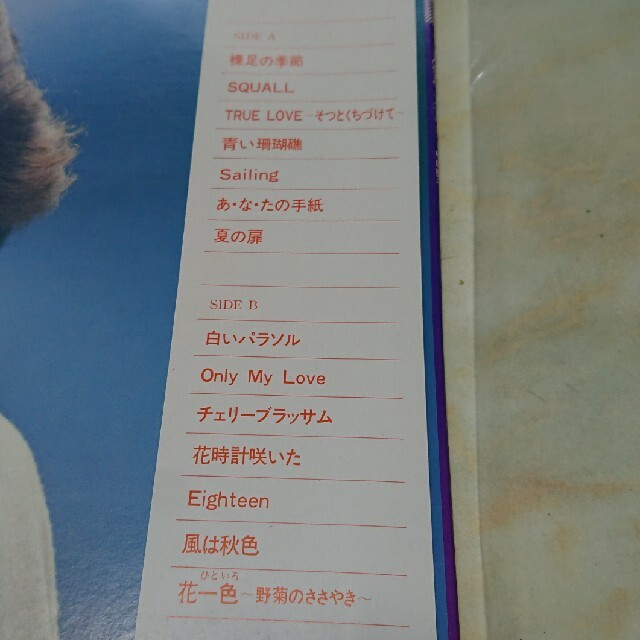 SIDE A
裸足の季節
SQUALL
TRUE LOVE ~そっとくちづけて~
青い珊瑚礁
Sailing
あ・な・たの手紙
夏の扉
SIDE B
白いパラソル
Only My Love
チェリーブラッサム
花時計咲いた
Eighteen
風は秋色
ひといろ
花一色~野菊のささやき~